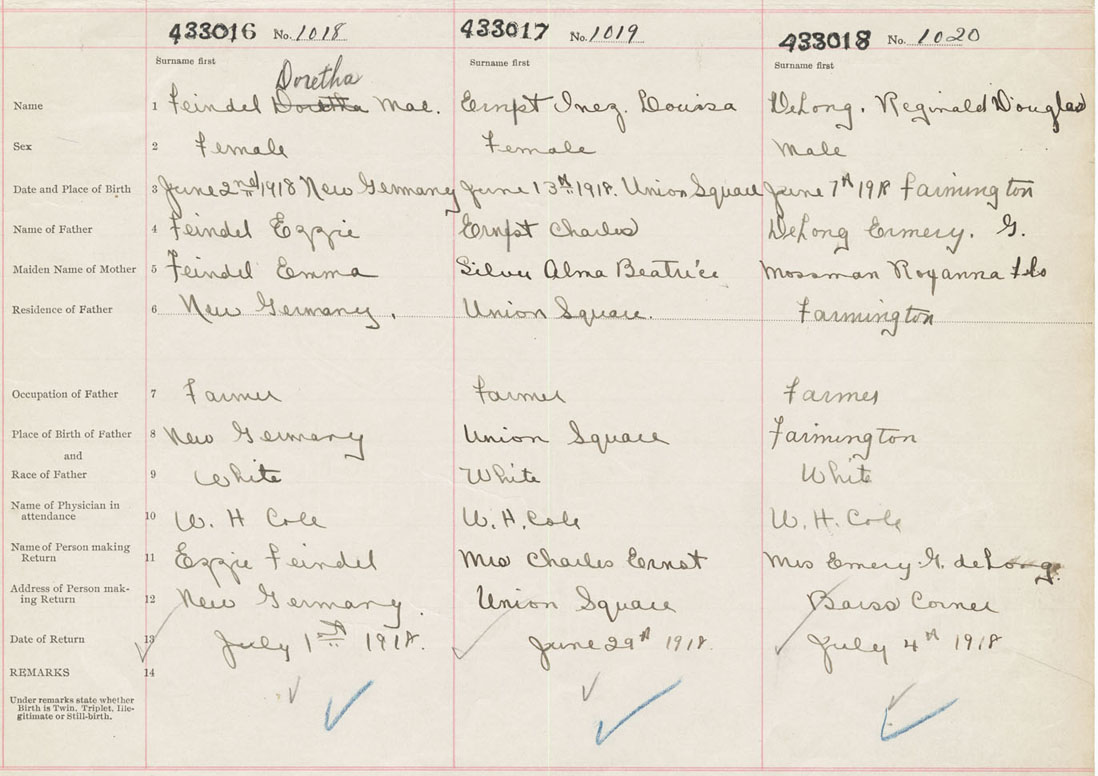 433016 No. 1018 433017 No. 1019 433018 No. 1020
Surname first Surname first Surname first
Doretha
Name 1 Feindel Doretha Mae. Ernst Inez. Louisa DeLong. Reginald Douglas
Sex 2 Female Female Male
Date and Place of Birth 3 June 2nd 1918 New Germany June 13th 1918. Union Square June 7th 1918 Farmington
Name of Father 4 Feindel Ezzie Ernst Charles DeLong Ermery. G.
Maiden Name of Mother 5 Feindel Emma Silver Alma Beatrice Mossman Royanna
Residence of Father 6 New Germany. Union Square. Farmington
Occupation of Father 7 Farmer Farmer Farmer
Place of Birth of Father 8 New Germany Union Square Farmington
and
Race of Father 9 White White White
Name of Physician in
attendance 10 W. H Cole W. H. Cole W. H. Cole
Name of Person making
Return 11 Ezzie Feindel Mrs Charles Ernst Mrs Emery. G. deLong.
Address of Person mak-
ing Return 12 New Germany. Union Square Barss Corner
Date of Return 13 July 1st 1918. June 29th 1918. July 4th 1918
REMARKS 14
Under remarks state whether
Birth is Twin, Triplet, Ille-
gitimate or Still-birth.